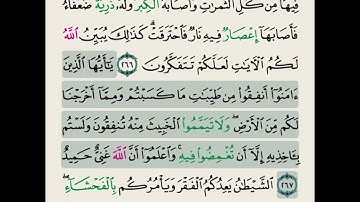 فِيهَا مِن كُلِّ ٱلثَّمَرَٰتِ وَأَصَابَهُ ٱلْكِبَرُ وَلَهُۥ ذُرِّيَّةٌ ضُعَفَآءُ
فَأَصَابَهَآ إِعْصَارٌ فِيهِ نَارٌ فَٱحْتَرَقَتْ ۗ كَذَٰلِكَ يُبَيِّنُ ٱللَّهُ
لَكُمُ ٱلْءَايَٰتِ لَعَلَّكُمْ تَتَفَكَّرُونَ ٢٦٦ يَٰٓأَيُّهَا ٱلَّذِينَ
ءَامَنُوٓا۟ أَنفِقُوا۟ مِن طَيِّبَٰتِ مَا كَسَبْتُمْ وَمِمَّآ أَخْرَجْنَا
لَكُم مِّنَ ٱلْأَرْضِ ۖ وَلَا تَيَمَّمُوا۟ ٱلْخَبِيثَ مِنْهُ تُنفِقُونَ وَلَسْتُم
بِـَٔاخِذِيهِ إِلَّآ أَن تُغْمِضُوا۟ فِيهِ ۚ وَٱعْلَمُوٓا۟ أَنَّ ٱللَّهَ غَنِىٌّ حَمِيدٌ
٢٦٧ ٱلشَّيْطَٰنُ يَعِدُكُمُ ٱلْفَقْرَ وَيَأْمُرُكُم بِٱلْفَحْشَآءِ ۖ